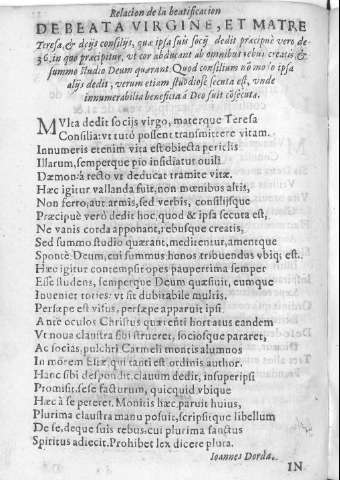 Relacion de la beatificacion
DE BEATA VIRGINE, ET MATRE
Teresa, & de ijs consilijs, quæ ipsa suis socijs dedit præcipuè vero de
36. in quo præcipitur, vt cor abducant ab omnibus rebus creatis, &
summo studio Deum quærant. Quod consilium nō modo ipsa
alijs dedit, verum etiam studiosè secuta est, vnde
innumerabilia beneficia à Deo suit cōsecuta.
MVlta dedit socijs virgo, materque Teresa
Consilia: vt tutò possent transmittere vitam.
Innumeris etenim vita est obiecta periclis
Illarum, semperque pio insidiatur ouili
Dæmon: à recto vt deducat tramite vitæ.
Hæc igitur vallanda fuit, non mœnibus altis,
Non ferro, aut armis, sed verbis, consilijsque
Præcipuè verò dedit hoc, quod & ipsa secuta est,
Ne vanis corda apponant, rebusque creatis,
Sed summo studio quærant, meditentur, amentque
Spontè Deum, cui summus honos tribuendus vbiq; est.
Hæc igitur contempsit opes pauperrima semper
Esse studens, semperque Deum quæsiuit, eumque
Inuenit toties: vt sit dubitabile multis,
Persæpe est visus, persæpe apparuit ipsi
Ante oculos Christus quærenti hortatus eandem
Vt noua claustra sibi strueret, sociosque pararet,
Ac socias, pulchri Carmeli montis alumnos
In morem Eliæ, qui tanti est ordinis author.
Hanc sibi despondit, clauum dedit, insuperipsi
Promisit, sese facturum, quicquid vbique
Hæc à se peteret. Monitis hæc paruit huius,
Plurima claustra manu posuit, scripsitque libellum
De se, deque suis rebus, cui plurima sanctus
Spiritus adiecit. Prohibet lex dicere plura.
Ioannes Dorda.
IN